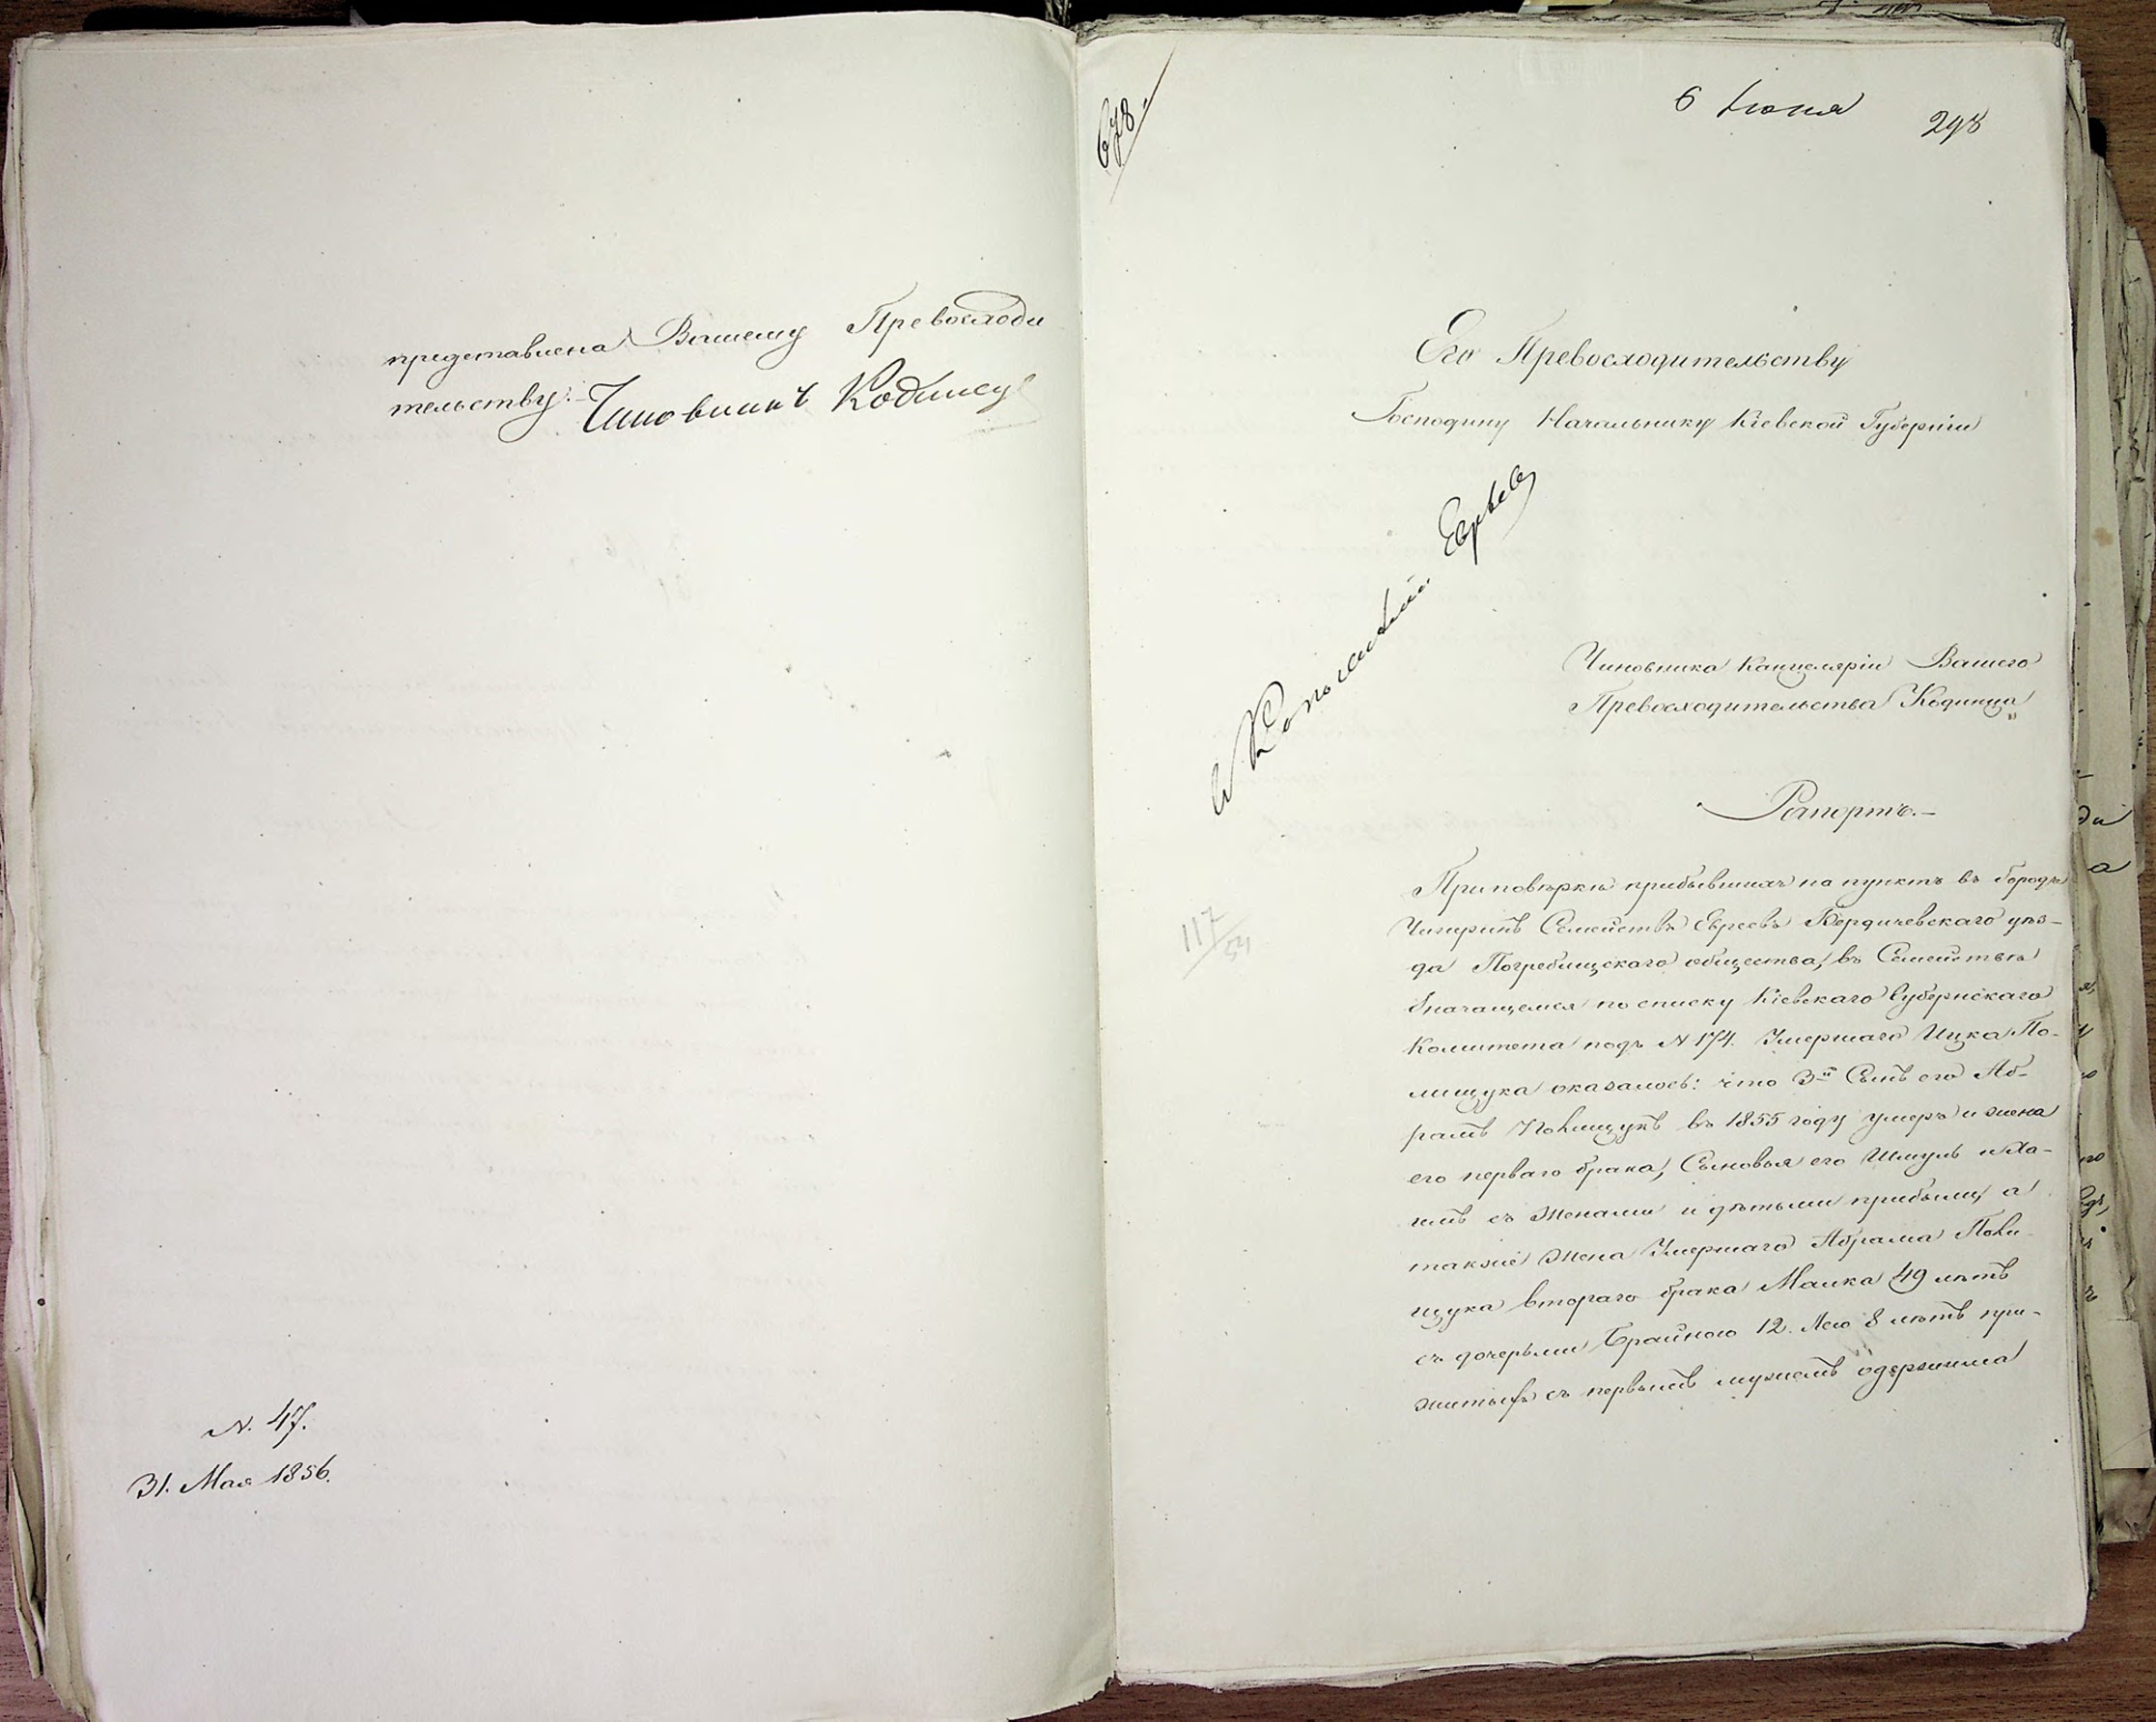 представлена Вашему Превосходи
тельству.– Чиновникъ Кодинец
N. 47.
31. Мая 1856.
678.
6 Июня
298
Его Превосходительству
Господину Начальнику Кіевской Губерніи
Евреев
Чиновника Канцеляріи Вашего
Превосходительства Кодинца
Рапортъ.–
117/54
При повѣркѣ прибывшихъ на пунктъ въ городѣ
Чигиринѣ Семействъ Евреевъ Бердичевскаго уѣз-
да Погребищскаго общества, въ Семействѣ
Значащемся по списку Кіевскаго Губернскаго
Комитета подъ N 174. Умершаго Ицка По-
лищука оказалось: что 3й Сынъ его Аб-
рамъ Полищукъ въ 1855 году умеръ и жена
его перваго брака, Сыновья его Шмуль и Ха-
имъ съ Женами и дѣтьми прибыли, а
также Жена Умершаго Абрама Поли-
щука втораго брака Малка 49 лѣтъ
съ дочерьми Брайною 12. Лею 8 лѣтъ при-
житыхъ съ первымъ мужемъ одержима